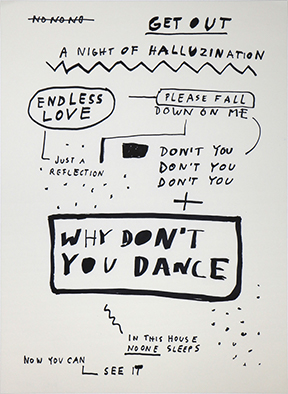 NO NO NO
GET OUT
A NIGHT OF HALLUZINATION
ENDLESS
LOVE
PLEASE FALL
DOWN ON ME
JUST A
REFLECTION
DON'T YOU
DON'T YOU
DON'T YOU
WHY DON'T
YOU DANCE
IN THIS HOUSE
NO ONE SLEEPS
NOW YOU CAN
SEE IT